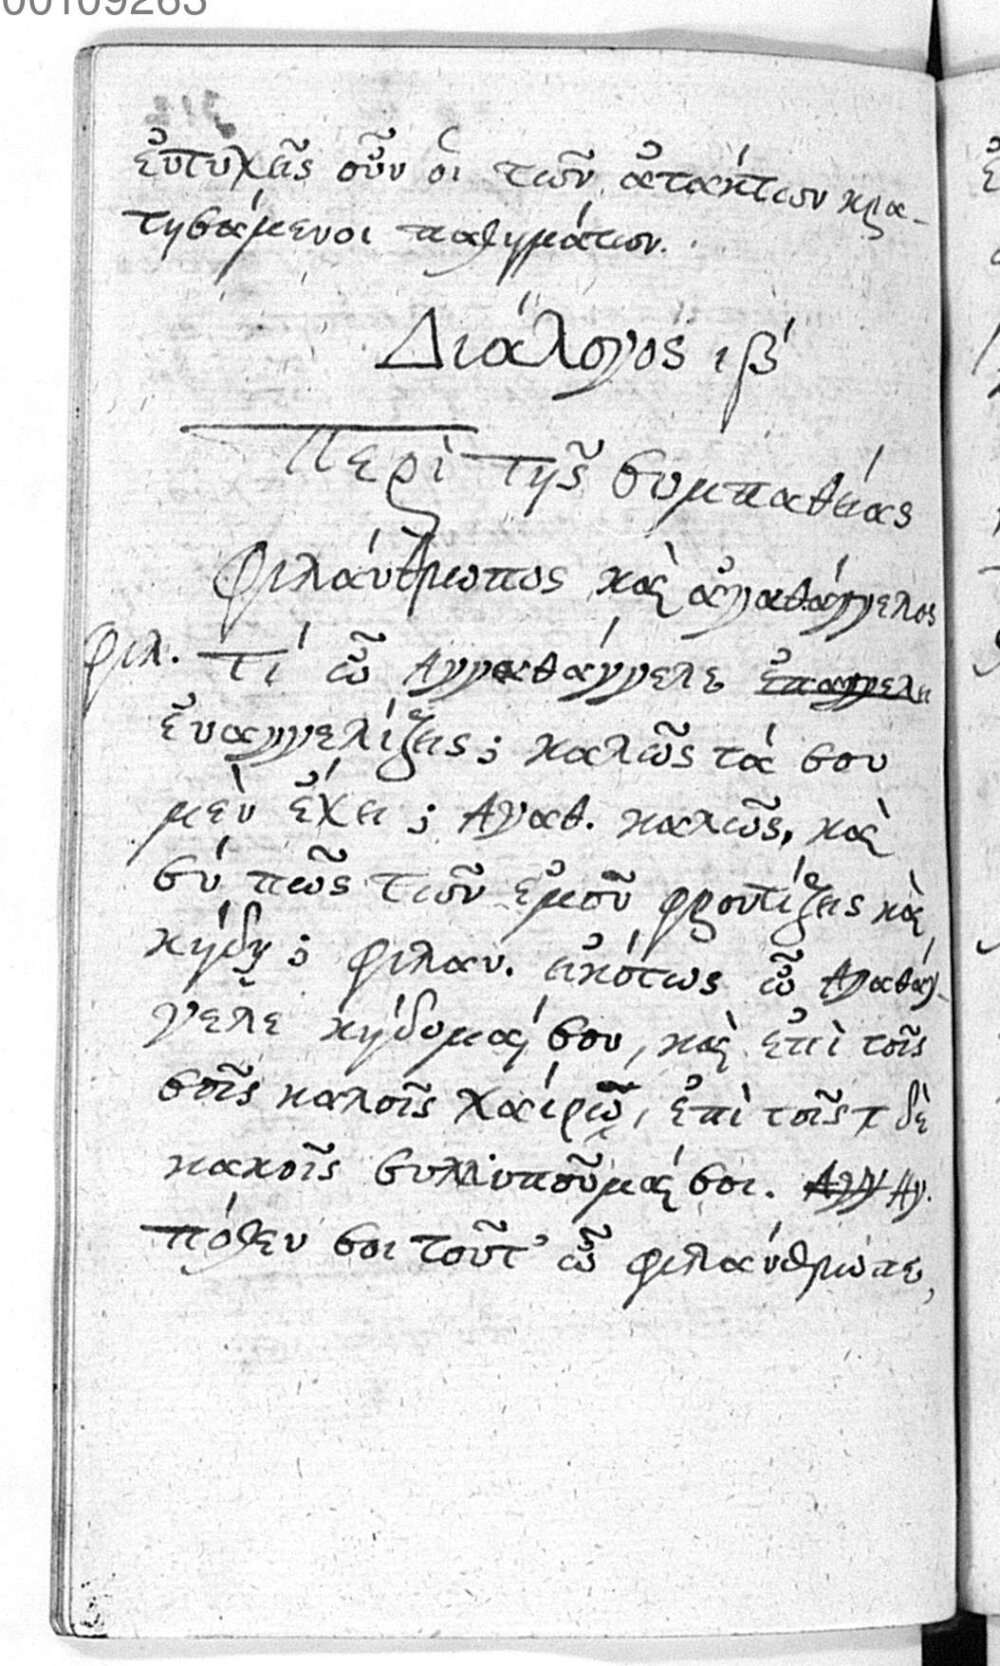 εὐτυχεῖς οὖν οἱ τῶν ἀτάκτων κρα-
τησάμενοι παθημάτων.
Διάλογος ιβ΄
Περὶ τῆς συμπαθείας
Φιλάνθρωπος καὶ ἀγαθάγγελος
Φιλ. Τί ὦ Αγγαθάγγελε ἐπαγγελει
ἐυαγγελίζεις; καλῶς τά σου
μὲν ἔχει; Αγαθ. καλῶς, καὶ
σύ πῶς τῶν ἐμοῦ φροντίζεις καὶ
κήδῃ; φιλαν. εἰκότως ὦ Αγαθάγ-
γελε κήδομαί σου, καὶ ἐπὶ τοῖς
σοῖς καλοῖς χαίρω, ἐπὶ τοῖς δὲ
κακοῖς συλλυποῦμαί σοι. Αγ.
πόθεν σοι τοῦτ' ὦ φιλάνθρωπε,